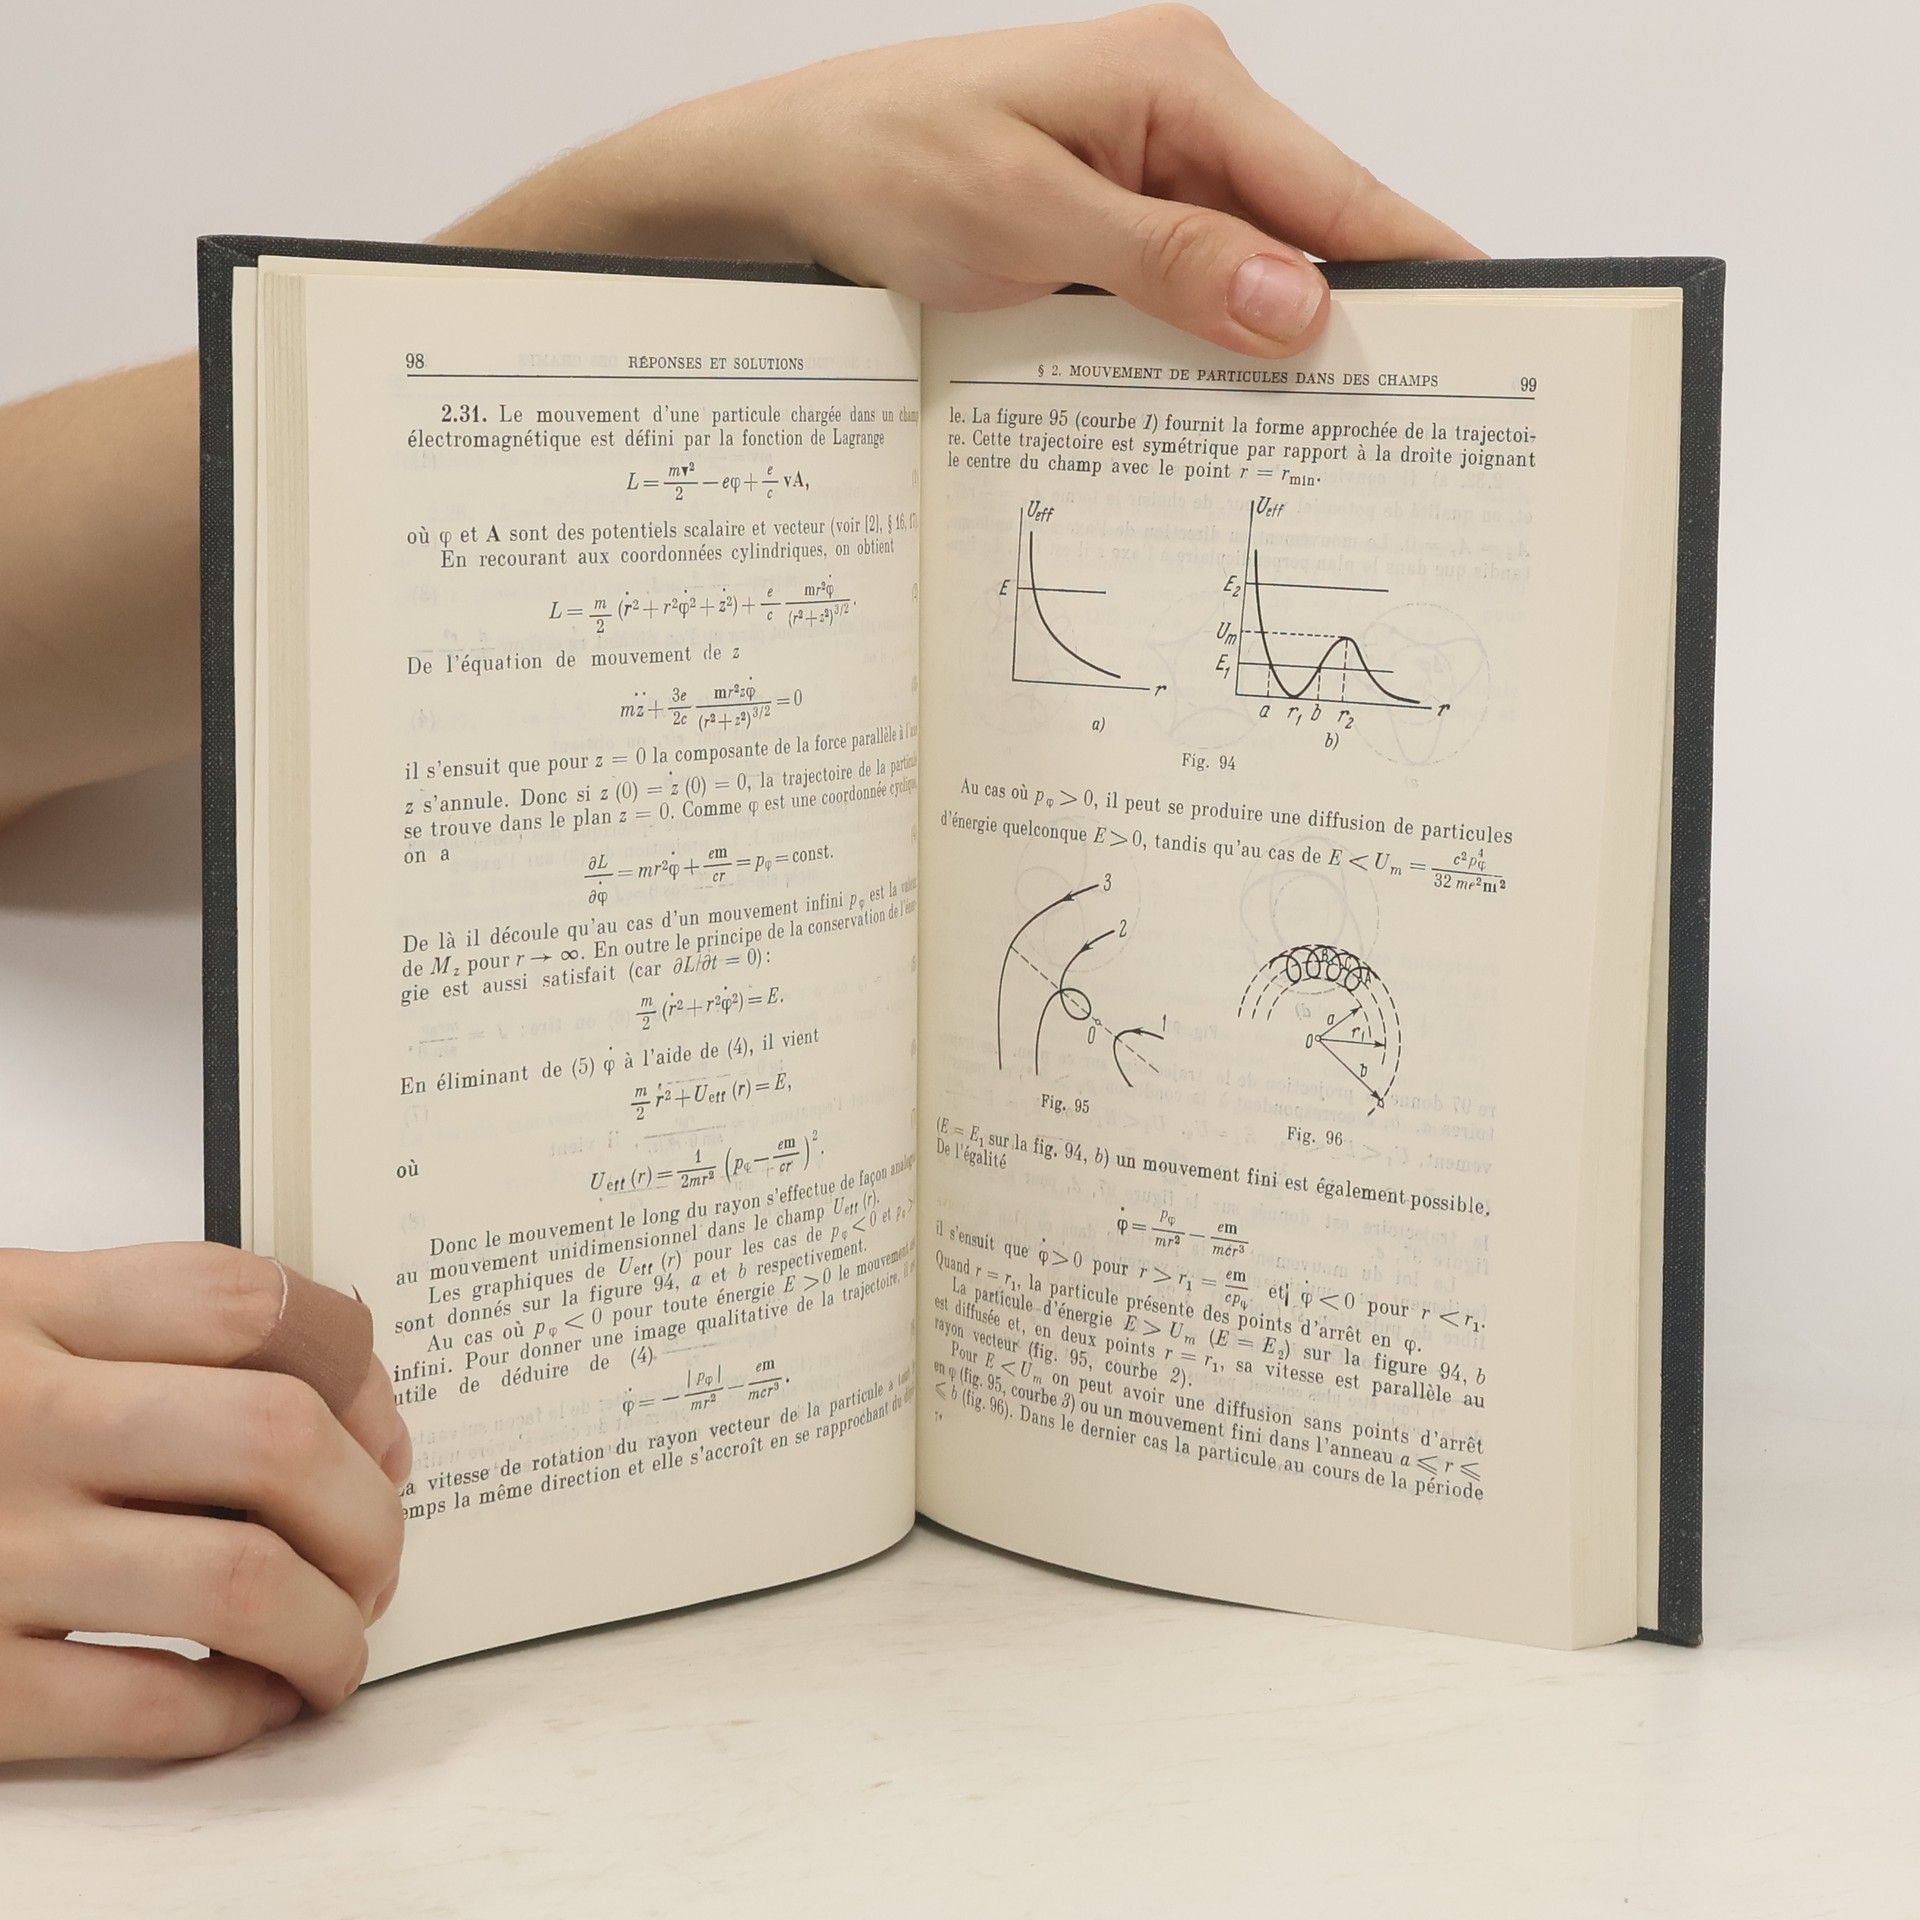 98 RÉPONSES ET SOLUTIONS
2.31. Le mouvement d'une particule chargée dans un
électromagnétique est défini par la fonction de Lagrange
L = mv²/2 − eφ + e/c vA,
où φ et A sont des potentiels scalaire et vecteur (voir [2], § 16,
En recourant aux coordonnées cylindriques, on obtient
L = m/2 (ṙ² + r²φ̇² + ż²) + e/c mr²φ̇/(r² + z²)^3/2.
De l'équation de mouvement de z
mz̈ + 3e/2c mr²zφ̇/(r² + z²)^3/2 = 0
il s'ensuit que pour z = 0 la composante de la force parallèle à
z s'annule. Donc si z (0) = ż (0) = 0, la trajectoire de la
se trouve dans le plan z = 0. Comme φ est une coordonnée
on a
∂L/∂φ̇ = mr²φ̇ + em/cr = pφ = const.
De là il découle qu'au cas d'un mouvement infini pφ est la
de Mz pour r → ∞. En outre le principe de la conservation de
gie est aussi satisfait (car ∂L/∂t = 0):
m/2 (ṙ² + r²φ̇²) = E.
En éliminant de (5) φ̇ à l'aide de (4), il vient
m/2 ṙ² + Ueff (r) = E,
où
Ueff (r) = 1/2mr² (pφ − em/cr)².
Donc le mouvement le long du rayon s'effectue de façon
au mouvement unidimensionnel dans le champ Ueff (r).
Les graphiques de Ueff (r) pour les cas de pφ < 0 et pφ >
sont donnés sur la figure 94, a et b respectivement.
Au cas où pφ < 0 pour toute énergie E > 0 le mouvement
infini. Pour donner une image qualitative de la trajectoire,
utile de déduire de (4)
φ̇ = − |pφ|/mr² − em/mcr³.
La vitesse de rotation du rayon vecteur de la particule a
emps la même direction et elle s'accroît en se rapprochant du
§ 2. MOUVEMENT DE PARTICULES DANS DES CHAMPS 99
le. La figure 95 (courbe 1) fournit la forme approchée de la trajectoi-
re. Cette trajectoire est symétrique par rapport à la droite joignant
le centre du champ avec le point r = rmin.
Ueff
E
r
a)
Ueff
E2
Um
E1
a r1 b r2
r
b)
Fig. 94
Au cas où pφ > 0, il peut se produire une diffusion de particules
d'énergie quelconque E > 0, tandis qu'au cas de E < Um = c²pφ⁴/32 me²m²
3
2
O
1
Fig. 95
a
r1
O
b
Fig. 96
(E = E1 sur la fig. 94, b) un mouvement fini est également possible.
De l'égalité
φ̇ = pφ/mr² − em/mcr³
il s'ensuit que φ̇ > 0 pour r > r1 = em/cpφ et φ̇ < 0 pour r < r1.
Quand r = r1, la particule présente des points d'arrêt en φ.
La particule d'énergie E > Um (E = E2) sur la figure 94, b
est diffusée et, en deux points r = r1, sa vitesse est parallèle au
rayon vecteur (fig. 95, courbe 2).
Pour E < Um on peut avoir une diffusion sans points d'arrêt
en φ (fig. 95, courbe 3) ou un mouvement fini dans l'anneau a ⩽ r ⩽
⩽ b (fig. 96). Dans le dernier cas la particule au cours de la période
7*